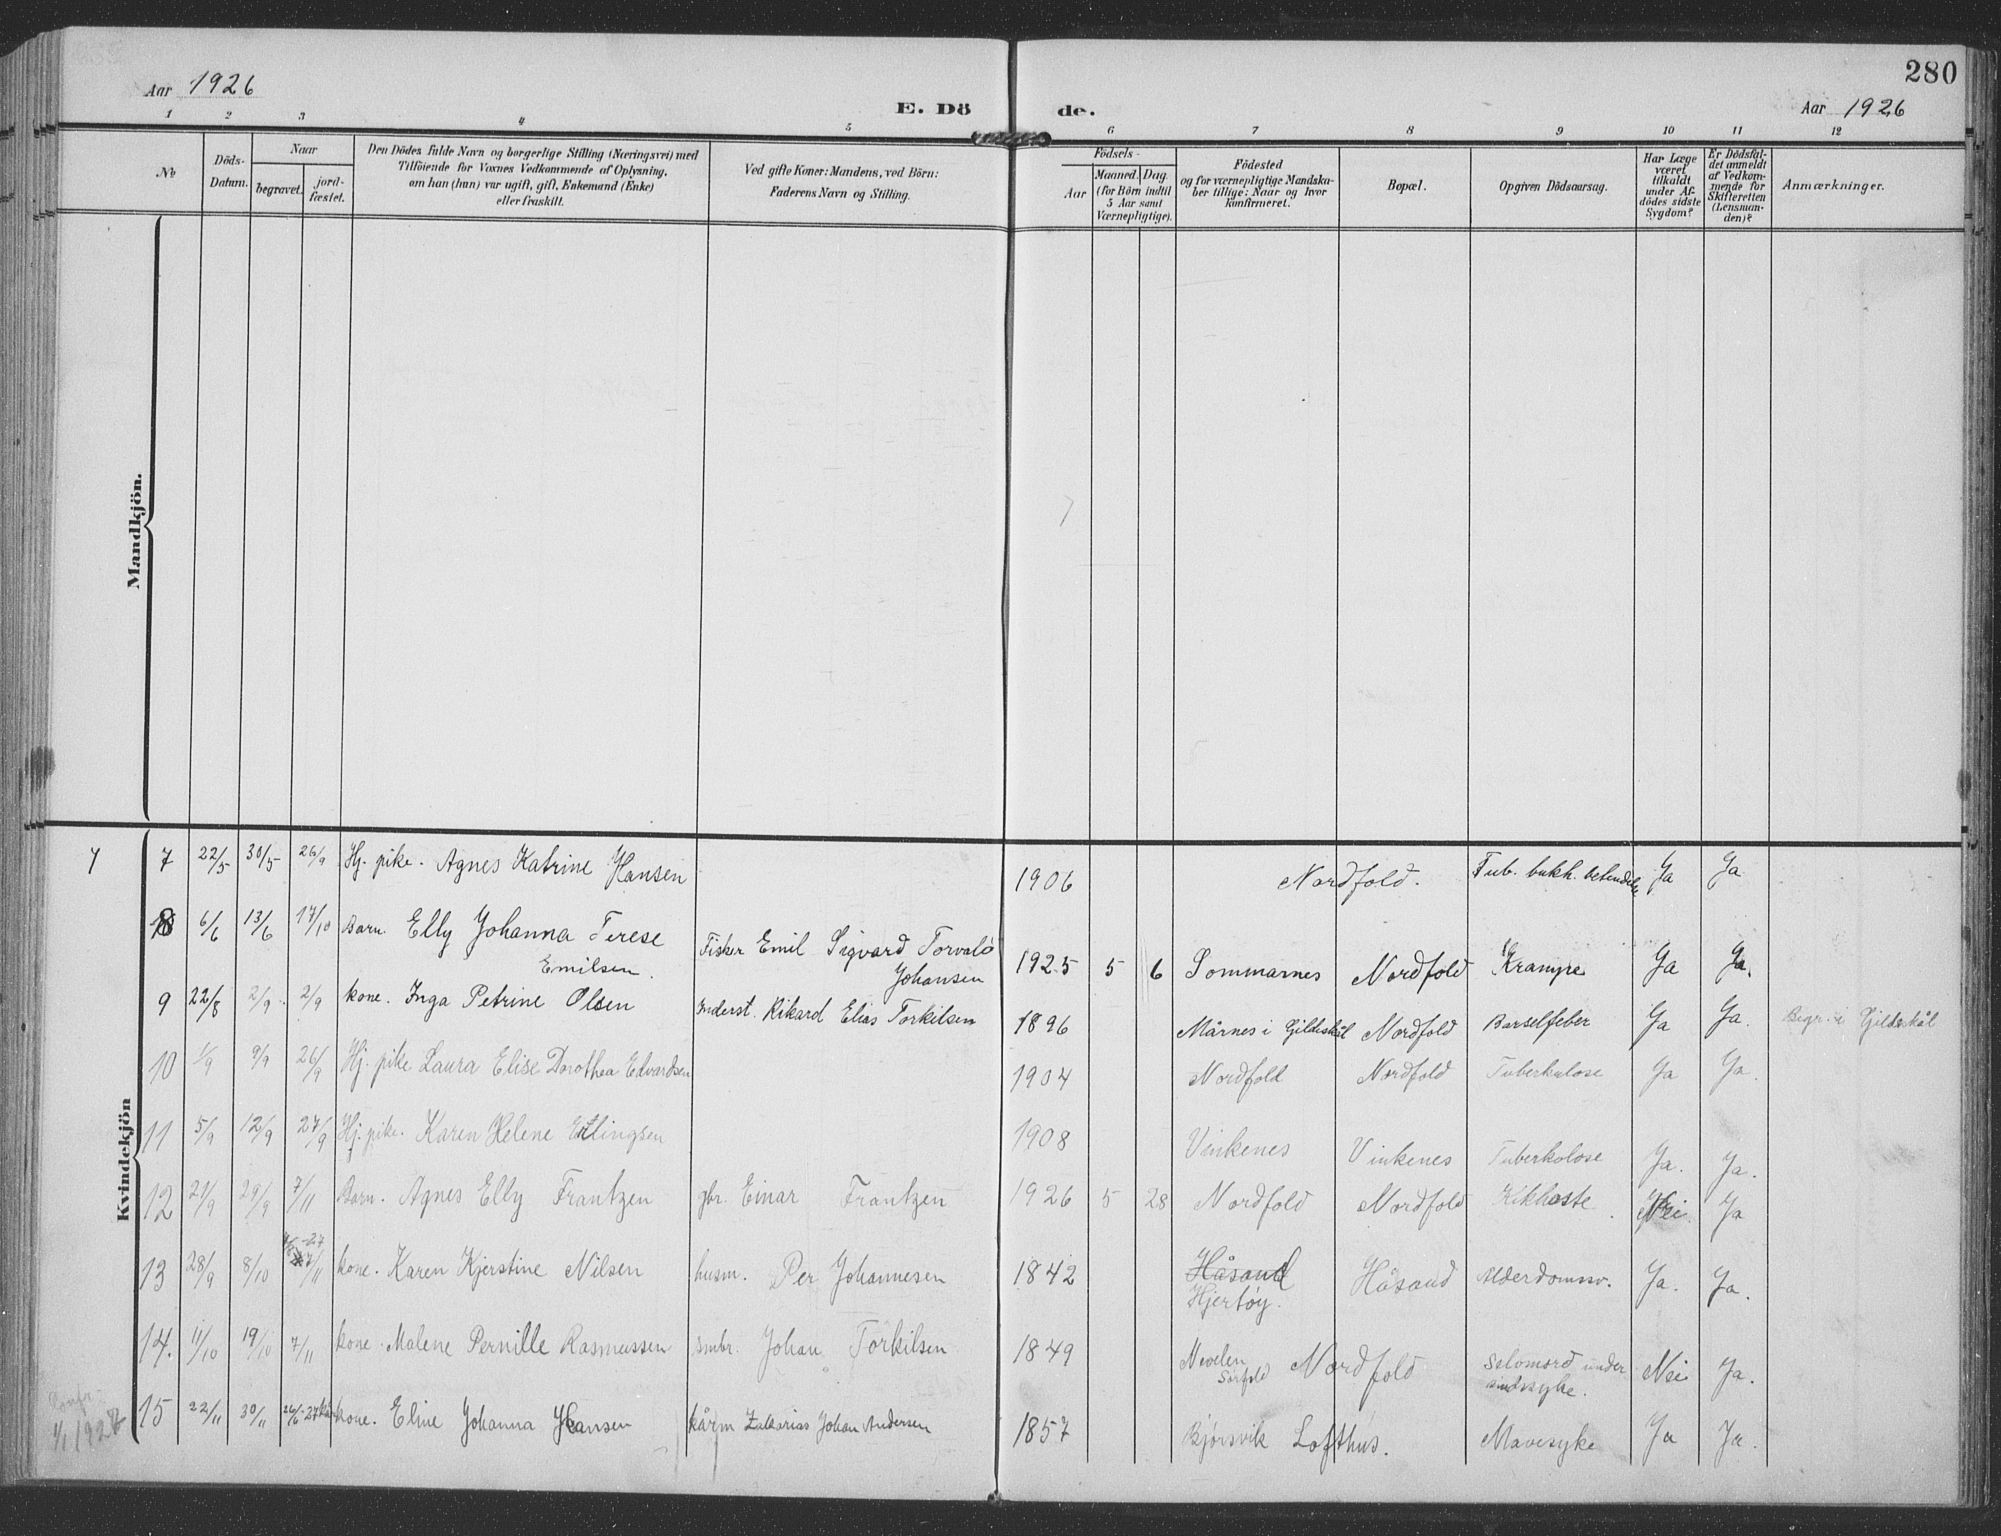 280
Aar 1926
E. Dö
de.
Aar 1926
1 2 3 4 5 6 7 8 9 10 11 12
No
Döds-
Datum.
Naar
begravet.
jord-
fæstet.
Den Dödes fulde Navn og borgerlige Stilling (Næringsvei) med
Tilföiende for Voxnes Vedkommende af Oplysning,
om han (hun) var ugift, gift, Enkemand (Enke)
eller fraskilt.
Ved gifte Koner: Mandens, ved Börn:
Faderens Navn og Stilling.
Födsels-
Aar
Maaned.
Dag
(for Börn indtil
5 Aar samt
Værnepligtige).
Födested
og for værnepligtige Mandska-
ber tillige: Naar og hvor
konfirmeret.
Bopæl.
Opgiven Dödsaarsag.
Har Læge
været
tilkaldt
under Af-
dödes sidste
Sygdom?
Er Dödsfal-
det anmeldt
af Vedkom-
mende for
Skifteretten
(Lensman-
den)?
Anmærkninger.
Mandkjön.
Kvindekjön
7 22/5 30/5 26/9 Hj. pike. Agnes Katrine Hansen 1906 Nordfold. Tub. bukh. betendelse Ja Ja
8 6/6 13/6 17/10 Barn. Elly Johanna Terese Fisker Emil Sigvard Torvald 1925 5 6 Sommarnes Nordfold Kramper Ja Ja.
Emilsen. Johansen
9 22/8 2/9 2/9 kone. Inga Petrine Olsen Inderst. Rikard Elias Torkilsen 1896 Mårnes i Gildeskål Nordfold Barselfeber Ja Ja. Begr. i Gildeskål
10 1/9 9/9 26/9 Hj. pike Laura Elise Dorothea Edvardsen 1904 Nordfold Nordfold Tuberkulose Ja Ja.
11 5/9 12/9 27/9 Hj. pike. Karen Helene Erlingsen 1908 Vinkenes Vinkenes Tuberkolose Ja. Ja.
12 21/9 29/9 7/11 Barn. Agnes Elly Frantzen gbr. Einar Frantzen 1926 5 28 Nordfold Nordfold Kikhoste. Nei Ja
13 28/9 8/10 7/11 kone. Karen Kjerstine Nilsen husm. Per Johannesen 1842 Håsand Håsand Alderdomssv. Ja. Ja.
Hjertøy.
14. 11/10 19/10 7/11 kone. Malene Pernille Rasmussen smbr. Johan Torkilsen 1849 Nevelen Nordfold Selvmord under Nei Ja.
Sørfold sindssyke.
15 22/11 30/11 kone. Eline Johanna Hansen kårm Zakarias Johan Andersen 1857 Bjørsvik Lofthus. Mavesyke Ja Ja.